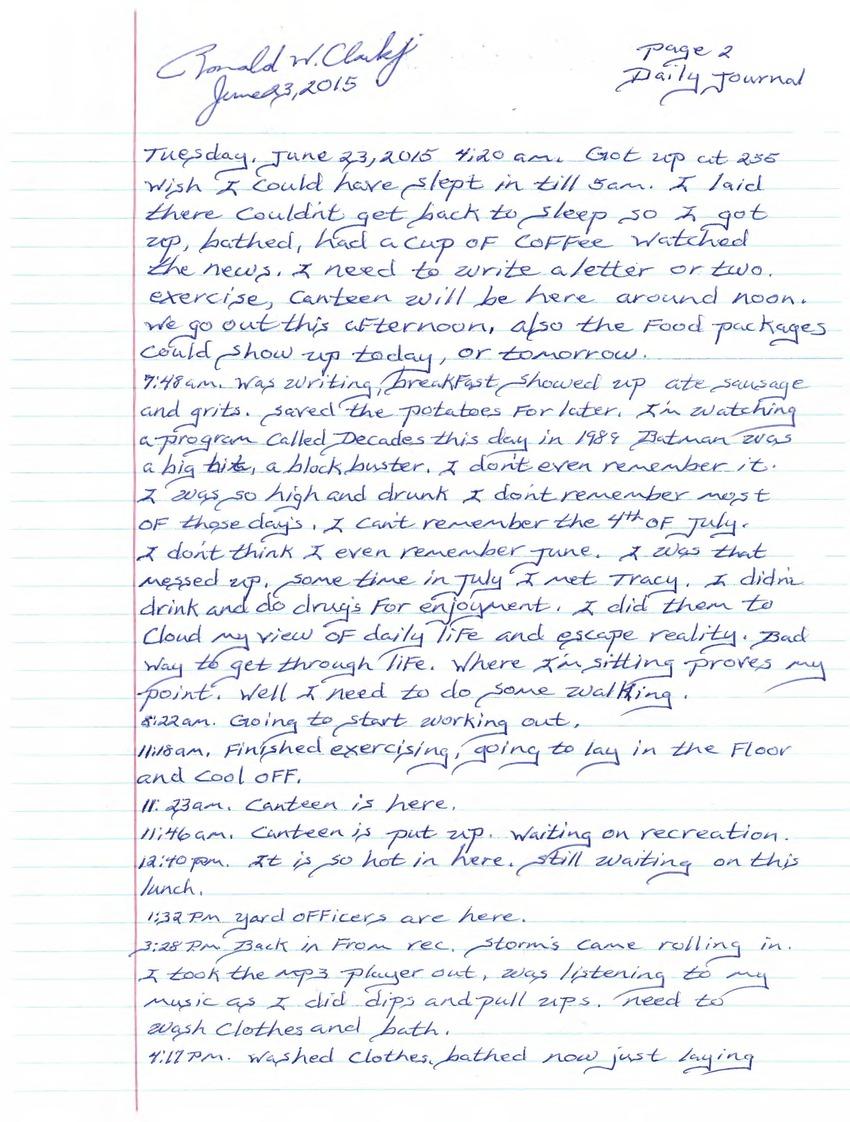 Ronald W. Clark Jr
June 23, 2015
Page 2
Daily Journal
Tuesday, June 23, 2015 4:20 am. Got up at 2:55
wish I could have slept in till 5am. I laid
there couldn't get back to sleep so I got
up, bathed, had a cup of coffee watched
the news. I need to write a letter or two.
exercise, canteen will be here around noon.
we go out this afternoon, also the food packages
could show up today, or tomorrow.
7:48am. Was writing, breakfast showed up ate sausage
and grits. saved the potatoes for later. I'm watching
a program called Decades this day in 1989 Batman was
a big hit, a block buster. I don't even remember it.
I was so high and drunk I don't remember most
of those day's. I can't remember the 4th of July.
I don't think I even remember June. I was that
messed up. some time in July I met Tracy. I didn't
drink and do drug's for enjoyment. I did them to
cloud my view of daily life and escape reality. Bad
way to get through life. Where I'm sitting proves my
point. Well I need to do some walking.
8:22am. Going to start working out.
11:18am. Finished exercising, going to lay in the floor
and cool off.
11:23am. Canteen is here.
11:46am. Canteen is put up. Waiting on recreation.
12:40pm. It is so hot in here. still waiting on this
lunch.
1:32 Pm yard officers are here.
3:28 Pm Back in from rec. storm's came rolling in.
I took the mp3 player out, was listening to my
music as I did dips and pull ups. need to
wash clothes and bath.
4:17 Pm. Washed clothes. bathed now just laying